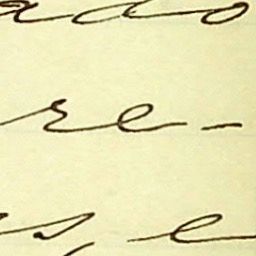 ado
re-
s, e